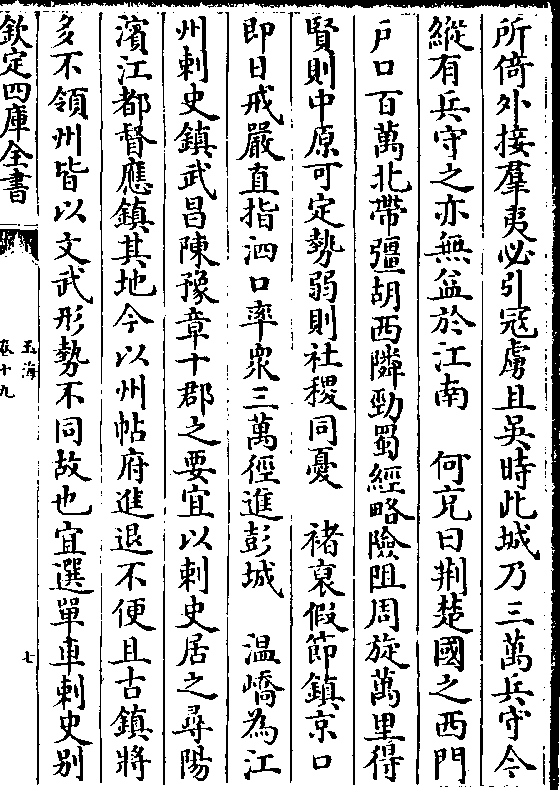 所倚外接羣夷必引冦虜且吳時此城乃三萬兵守今
縱有兵守之亦無益於江南　何充曰荆楚國之西門
戸口百萬北帶彊胡西隣勁蜀經略險阻周旋萬里得
賢則中原可定勢弱則社稷同憂　禇裒假節鎮京口
即日戒嚴直指泗口率衆三萬徑進彭城　温嶠為江
州刺史鎮武昌陳豫章十郡之要宜以刺史居之尋陽
濱江都督應鎮其地今以州帖府進退不便且古鎮將
多不領州皆以文武形勢不同故也宜選單車刺史别
欽定四庫全書
玉海
卷十九
七